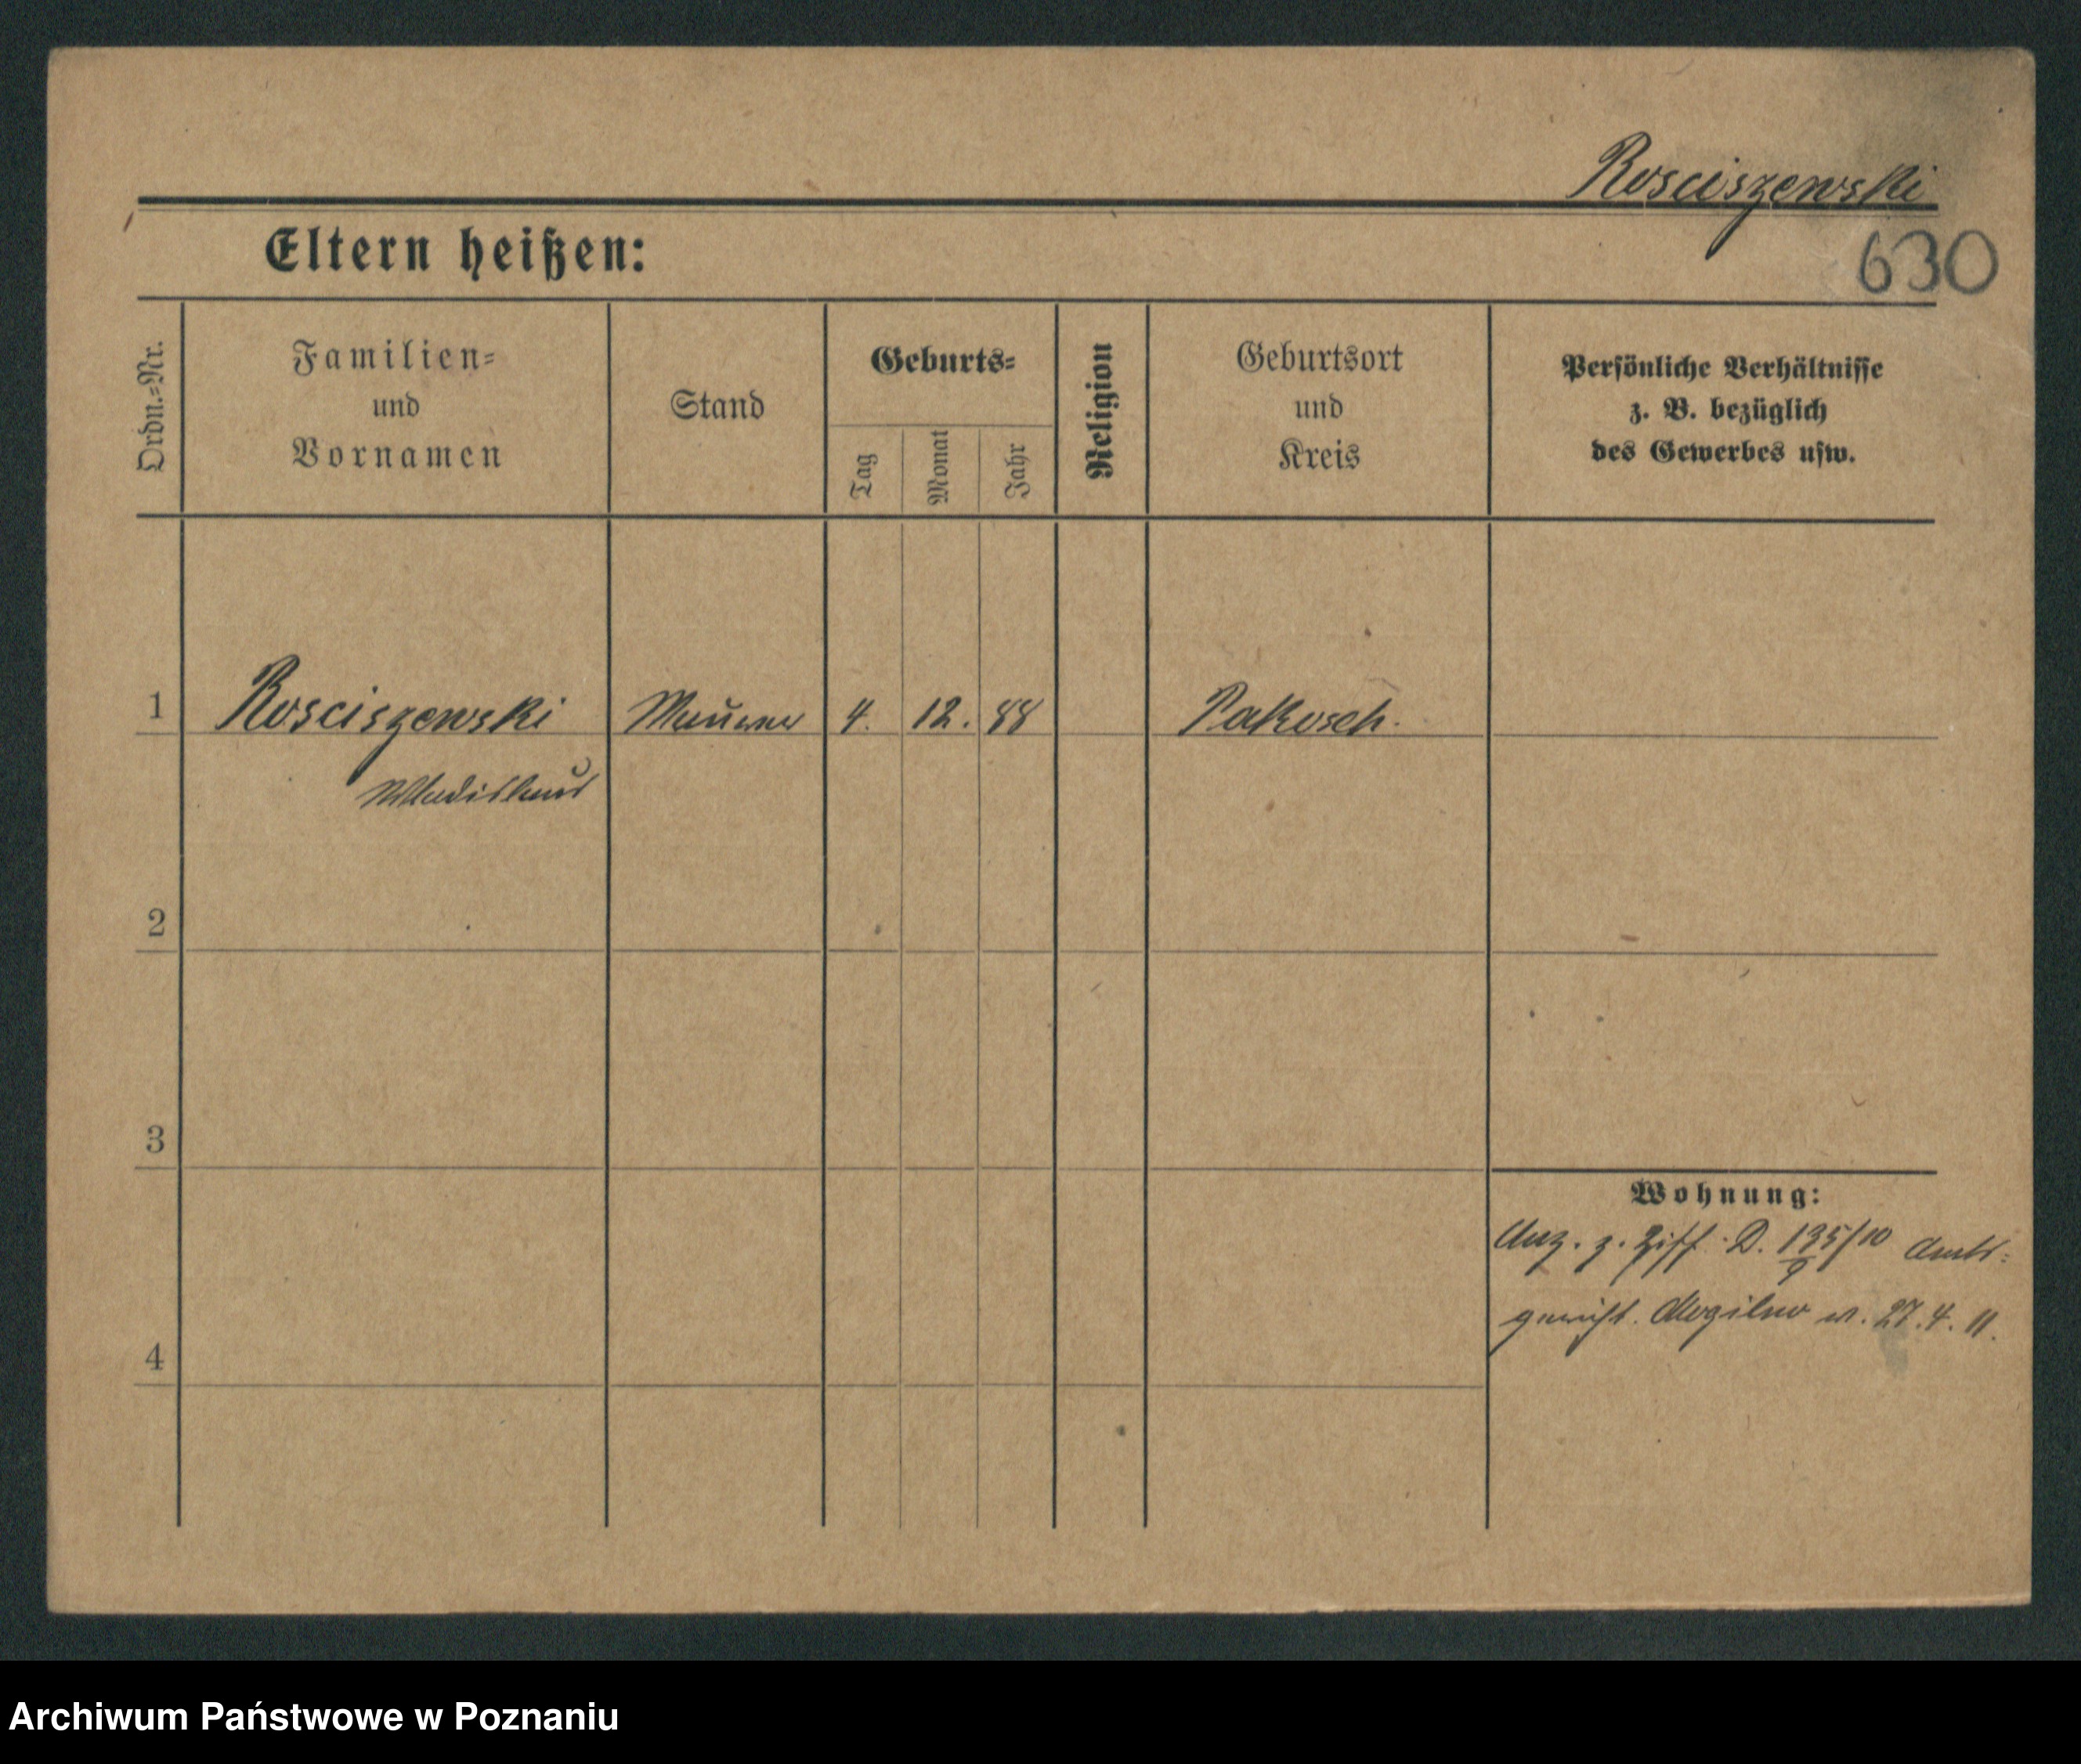 Rosciszewski
630
Eltern heißen:
Ordn.=Nr.
Familien=
und
Vornamen
Stand
Geburts=
Tag
Monat
Jahr
Religion
Geburtsort
und
Kreis
Persönliche Verhältnisse
z. B. bezüglich
des Gewerbes usw.
1 Rosciszewski Maurer 4. 12. 88 Pakosch.
Wladislaus
2
3
Wohnung:
z. Ziff. D. 135/10 Amts=
9
gericht. Mogilno v. 27. 4. 11.
4
Archiwum Państwowe w Poznaniu